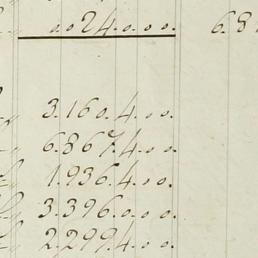 24.0.0.
3.160.4.0.0.
6.867.4.0.0.
1.936.4.0.0.
3.396.0.0.0.
2.299.4.0.0.